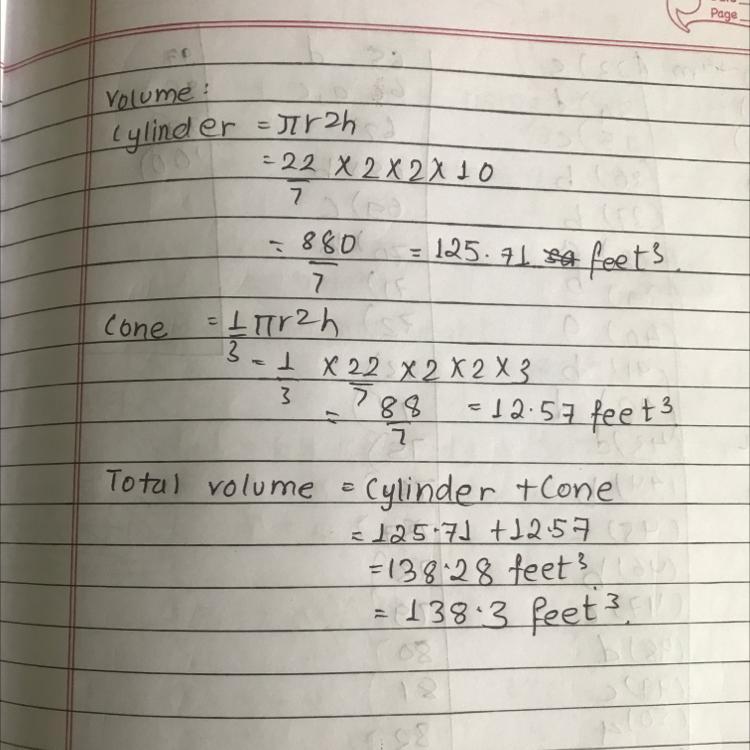 Page
Volume:
Cylinder = πr2h
= 22/7 × 2 × 2 × 10
= 880/7 = 125.71 feet³.
Cone = 1/3 πr2h
= 1/3 × 22/7 × 2 × 2 × 3
= 88/7 = 12.57 feet³
Total volume = Cylinder + Cone
= 125.71 + 12.57
= 138.28 feet³
= 138.3 feet³.